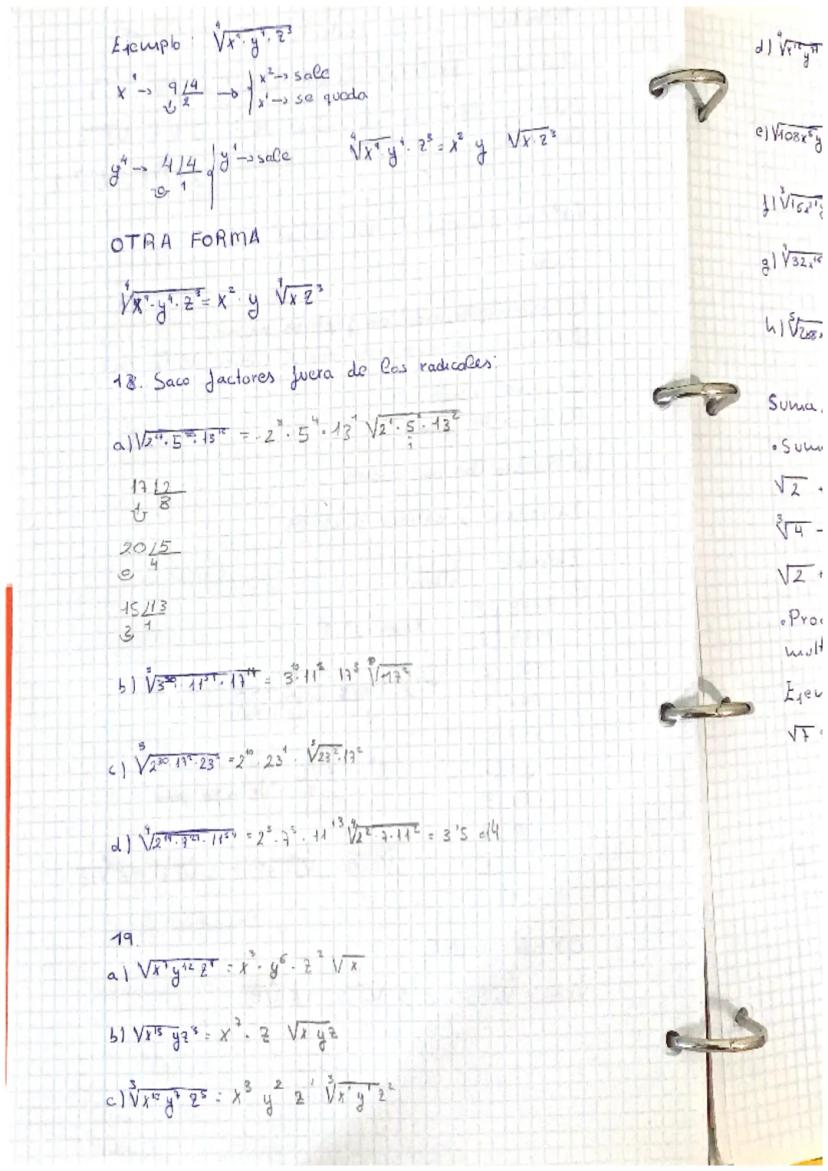 Ejemplo: ∜x⁹·y⁴·z³
x⁹ → 9 |4 → x² → sale
1 2 x¹ → se queda
y⁴ → 4 |4 y¹ → sale ∜x⁹ y⁴·z³ = x² y √x·z³
0 1
OTRA FORMA
∜x⁹·y⁴·z³ = x²·y ∜x z³
18. Saco factores fuera de los radicales:
a) √2¹⁷·5²⁰·13¹⁵ = 2⁸·5⁴·13¹ √2¹·5·13²
17 |2
1 8
20 |5
0 4
15 |13
3 1
b) 3 11 17 = 3¹⁰·11 17
c) ⁵√2³⁰·17²·23 = 2¹⁰ 23¹ · √23²·17²
d) ∜2¹⁴·7²¹·11⁵⁴ = 2³·7⁵·11¹³ ∜2²·7·11² = 3'5 d14
19.
a) √x⁷y¹²z⁴ = x³·y⁶·z² √x
b) √x¹⁵ yz³ = x⁷·z √x yz
c) ³√x¹⁰ y⁷ z⁵ = x³ y² z¹ ³√x¹ y¹ z²
d)
e) √108x⁵y
f)
g)
h)
Suma
√2
³√4 -
√2 +
√7